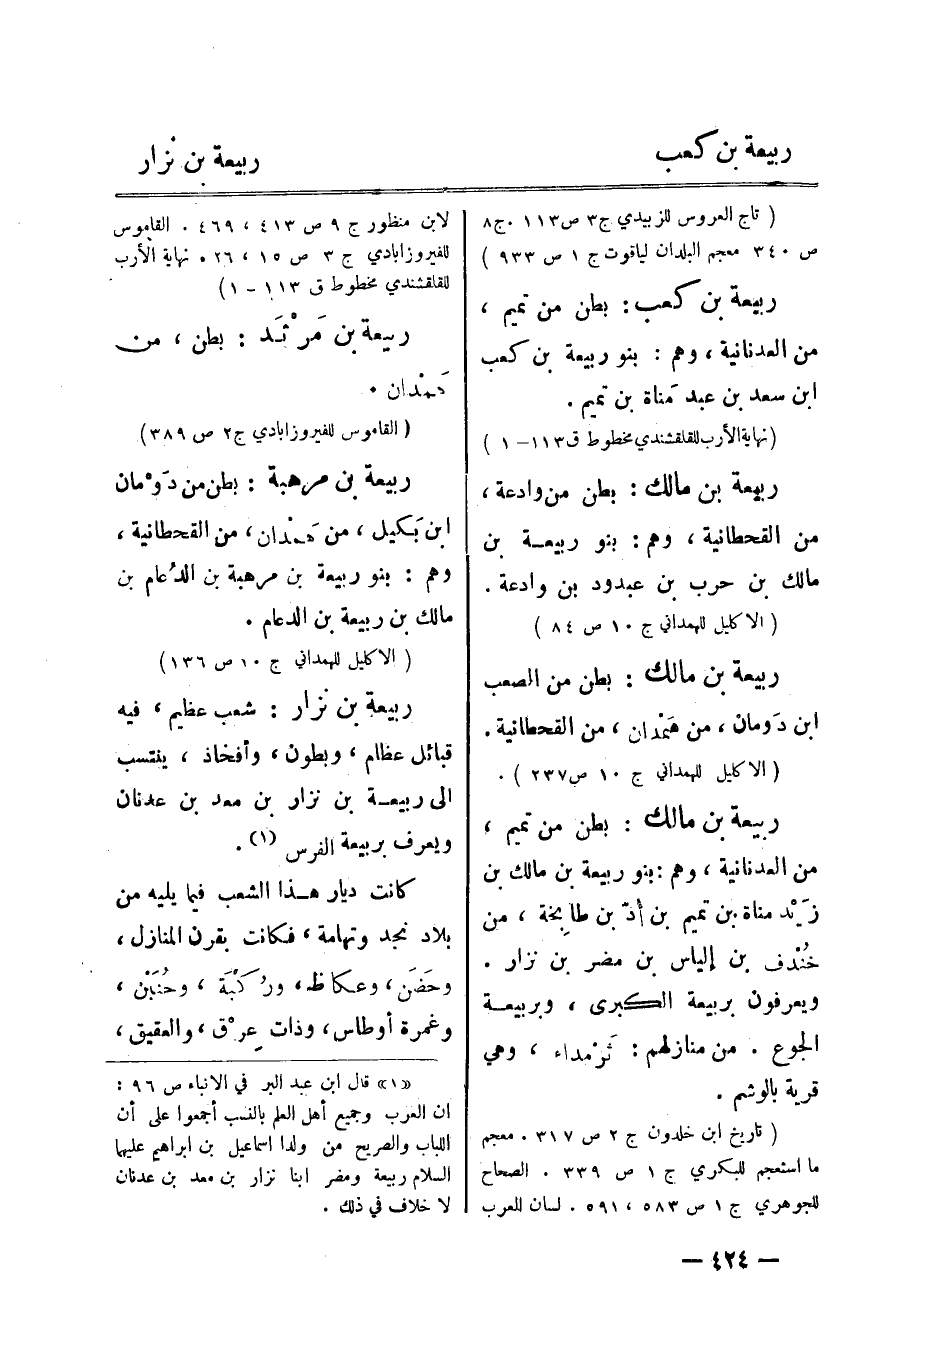 ربيعة بن كعب
ربيعة بن نزار
( تاج العروس للزبيدي ج٣ ص١١٣ . ج٨
ص ٣٤٠ معجم البلدان لياقوت ج ١ ص ٩٣٣ )
ربيعة بن كعب : بطن من تميم ،
من العدنانية ، وهم : بنو ربيعة بن كعب
ابن سعد بن عبد مَناة بن تميم .
( نهاية الأرب للقلقشندي مخطوط ق ١١٣ - ١ )
ربيعة بن مالك : بطن من وادعة ،
من القحطانية ، وهم : بنو ربيعة بن
مالك بن حرب بن عبدود بن وادعة .
( الاكليل للهمداني ج ١٠ ص ٨٤ )
ربيعة بن مالك : بطن من الصعب
ابن دَومان ، من هَمْدان ، من القحطانية .
( الاكليل للهمداني ج ١٠ ص ٢٣٧ ) .
ربيعة بن مالك : بطن من تميم ،
من العدنانية ، وهم : بنو ربيعة بن مالك بن
زَيْد مناة بن تميم بن أدّ بن طابِخة ، من
خُنْدف بن إلياس بن مضر بن نزار .
ويعرفون بربيعة الكبرى ، وبربيعة
الجوع . من منازلهم : ثَرْمداء ، وهي
قرية بالوشم .
( تاريخ ابن خلدون ج ٢ ص ٣١٧ . معجم
ما استعجم للبكري ج ١ ص ٣٣٩ . الصحاح
للجوهري ج ١ ص ٥٨٣ ، ٥٩١ . لسان العرب
لابن منظور ج ٩ ص ٤١٣ ، ٤٦٩ . القاموس
للفيروزابادي ج ٣ ص ١٥ ، ٢٦ . نهاية الأرب
للقلقشندي مخطوط ق ١١٣ - ١ )
ربيعة بن مَرْثَد : بطن ، من
هَمْدان .
( القاموس للفيروزابادي ج٢ ص ٣٨٩ )
ربيعة بن مرهبة : بطن من دَوْمان
ابن بَكيل ، من هَمْدان ، من القحطانية ،
وهم : بنو ربيعة بن مرهبة بن الدُعام بن
مالك بن ربيعة بن الدعام .
( الاكليل للهمداني ج ١٠ ص ١٣٦ )
ربيعة بن نزار : شعب عظيم ، فيه
قبائل عظام ، وبطون ، وأفخاذ ، ينتسب
الى ربيعة بن نزار بن معد بن عدنان
ويعرف بربيعة الفرس (١) .
كانت ديار هذا الشعب فيما يليه من
بلاد نجد وتهامة ، فكانت بقرن المنازل ،
وحَضَن ، وعكاظ ، ورُكْبَة ، وحُنَيْن ،
وغمرة أوطاس ، وذات عِرْق ، والعقيق ،
«١» قال ابن عبد البر في الانباء ص ٩٦ :
ان العرب وجميع أهل العلم بالنسب أجمعوا على أن
اللباب والصريح من ولدا اسماعيل بن ابراهيم عليهما
السلام ربيعة ومضر ابنا نزار بن معد بن عدنان
لا خلاف في ذلك .
— ٤٢٤ —